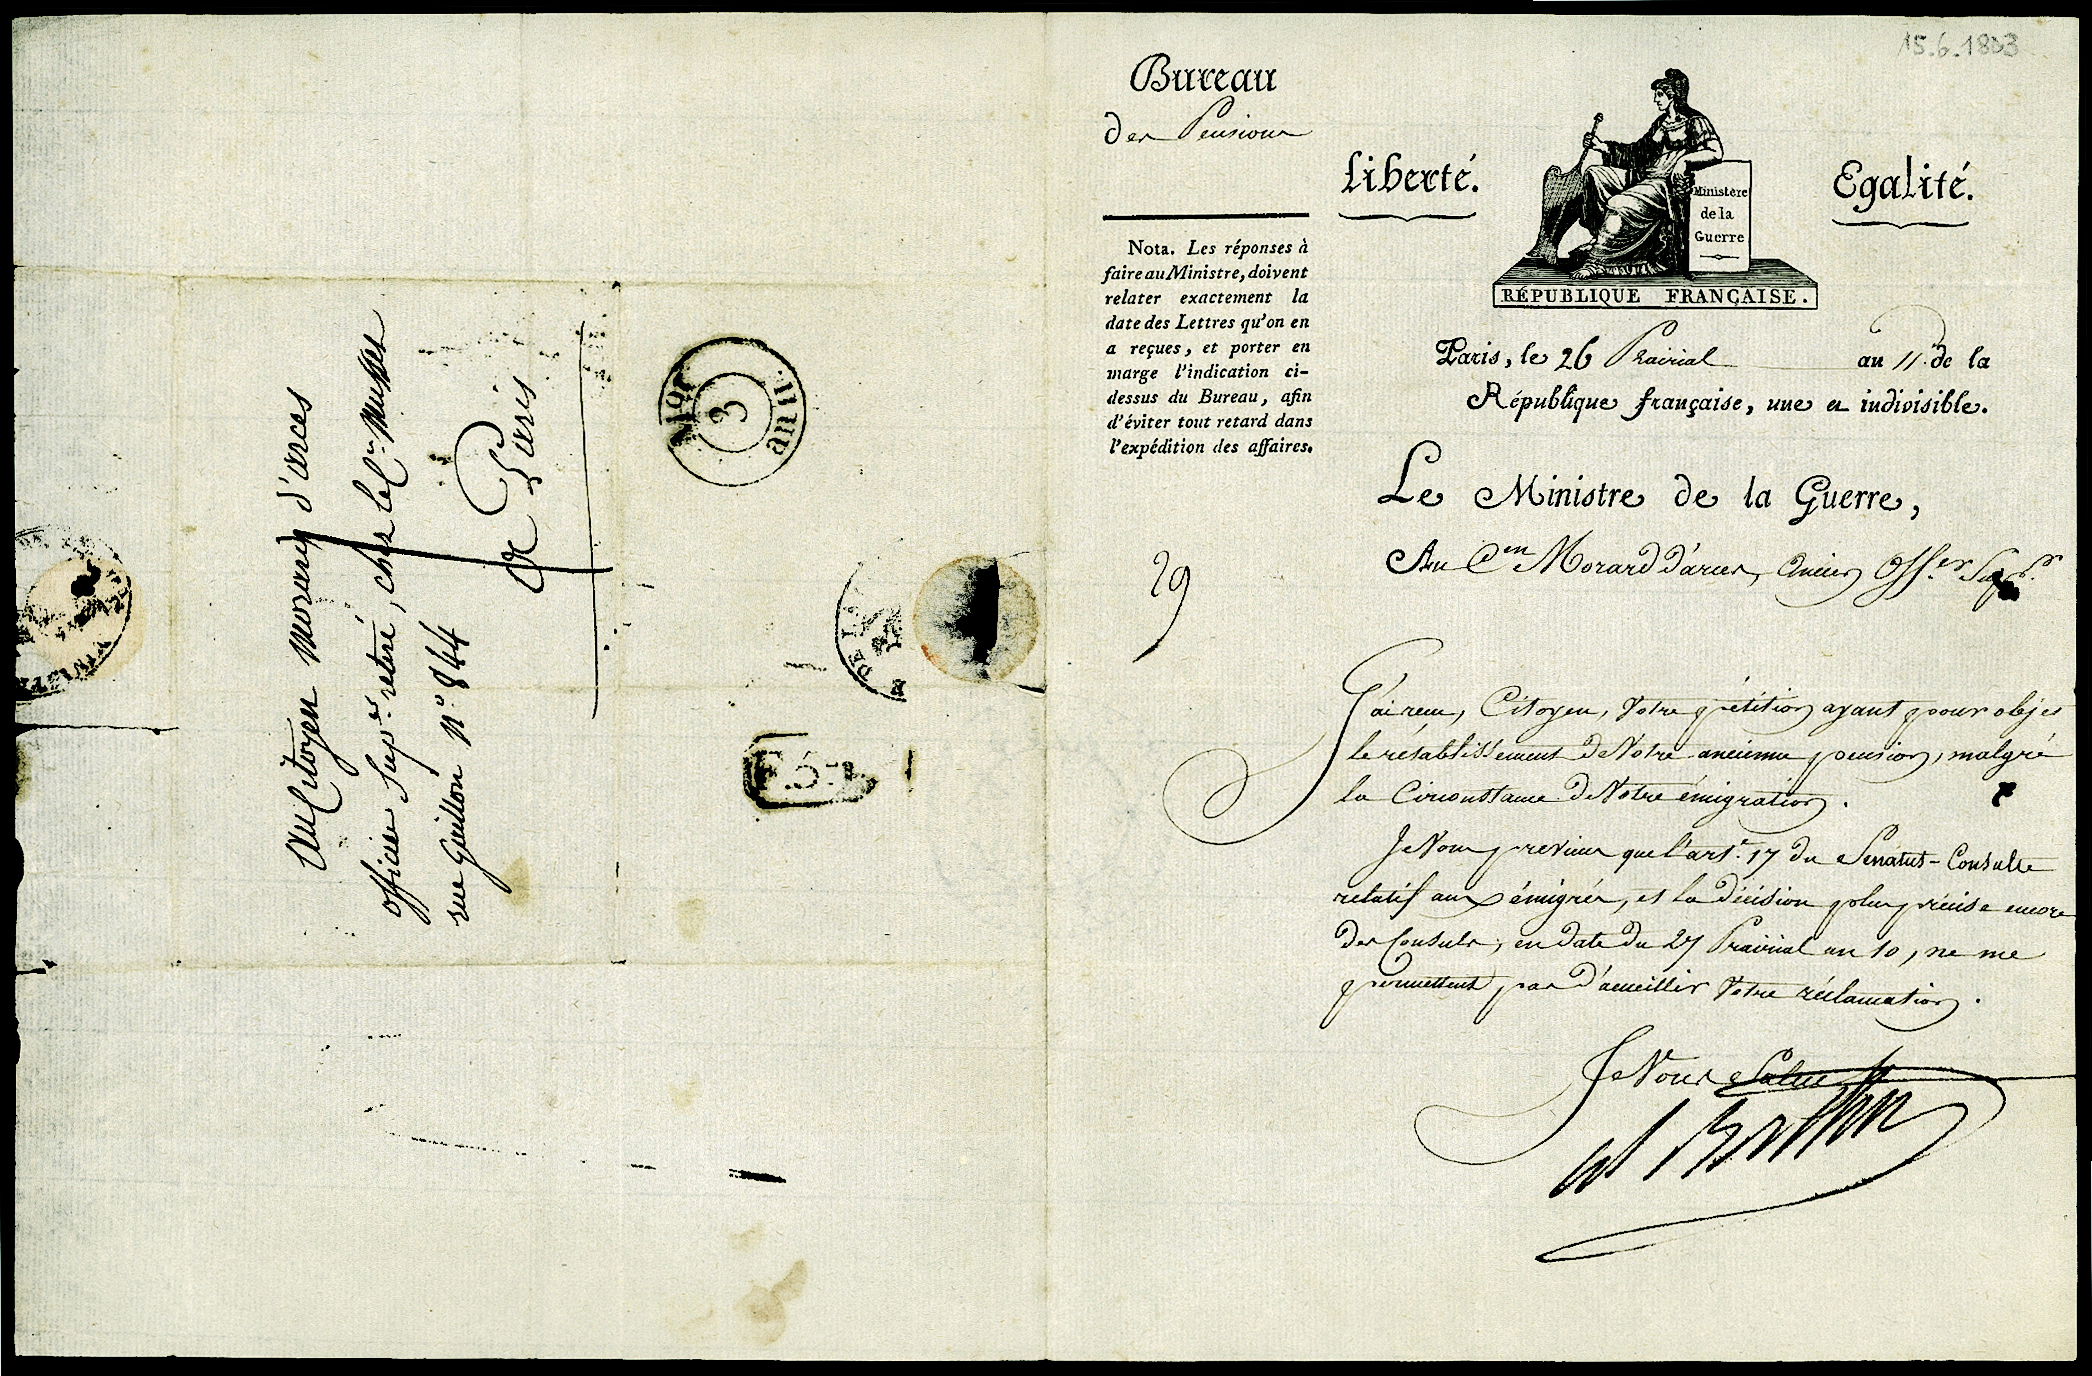 15.6.1803
Bureau
des Pensions
Liberté.
Egalité.
Ministère
de la
Guerre
RÉPUBLIQUE FRANÇAISE.
Nota. Les réponses à
faire au Ministre, doivent
relater exactement la
date des Lettres qu'on en
a reçues, et porter en
marge l'indication ci-
dessus du Bureau, afin
d'éviter tout retard dans
l'expédition des affaires.
Paris, le 26 Prairial an 11 de la
République française, une et indivisible.
Le Ministre de la Guerre,
Au Cen Morard d'arces, Ancien Offer Supr
29
J'ai reçu, Citoyen, Votre pétition ayant pour objet
le rétablissement de Votre ancienne pension, malgré
la Circonstance de Votre émigration.
Je Vous previens que l'art. 17 du Senatus-Consulte
relatif aux émigrés, et la décision plus précise encore
des Consuls, en date du 27 Prairial an 10, ne me
permettent pas d'accueillir Votre réclamation.
Je Vous Salue
Au Citoyen Morard d'arces
officier Supr. retiré, chez le Cen
rue Guillon No. 844
A Paris
3
P.5.P.